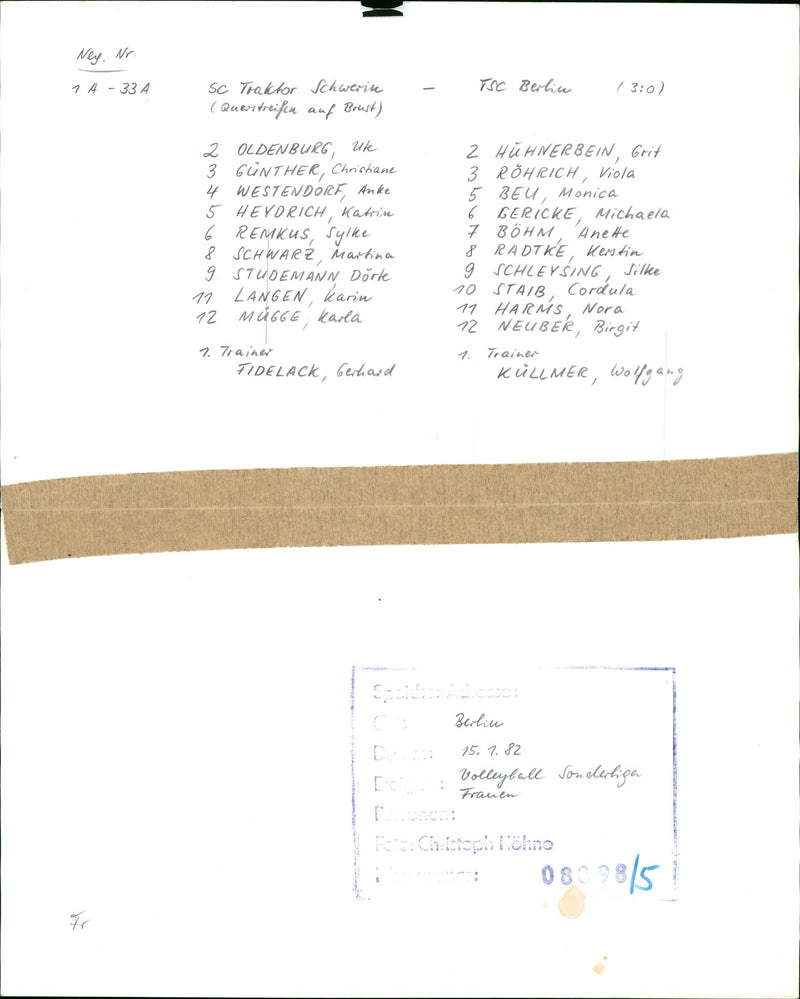 Neg. Nr.
1A - 33A SC Traktor Schwerin - TSC Berlin (3:0)
(Querstreifen auf Brust)
2 OLDENBURG, Ute
3 GÜNTHER, Christiane
4 WESTENDORF, Anke
5 HEYDRICH, Katrin
6 REMKUS, Sylke
8 SCHWARZ, Martina
9 STUDEMANN, Dörte
11 LANGEN, Karin
12 MÜGGE, Karla
1. Trainer
FIDELACK, Gerhard
2 HÜHNERBEIN, Grit
3 RÖHRICH, Viola
5 BEU, Monica
6 GERICKE, Michaela
7 BÖHM, Anette
8 RADTKE, Kerstin
9 SCHLEYSING, Silke
10 STAIB, Cordula
11 HARMS, Nora
12 NEUBER, Birgit
1. Trainer
KÜLLMER, Wolfgang
Speicher-Adresse:
Berlin
15.1.82
Volleyball Sonderliga
Frauen
Personen:
Foto: Christoph Höhne
/5
Fr